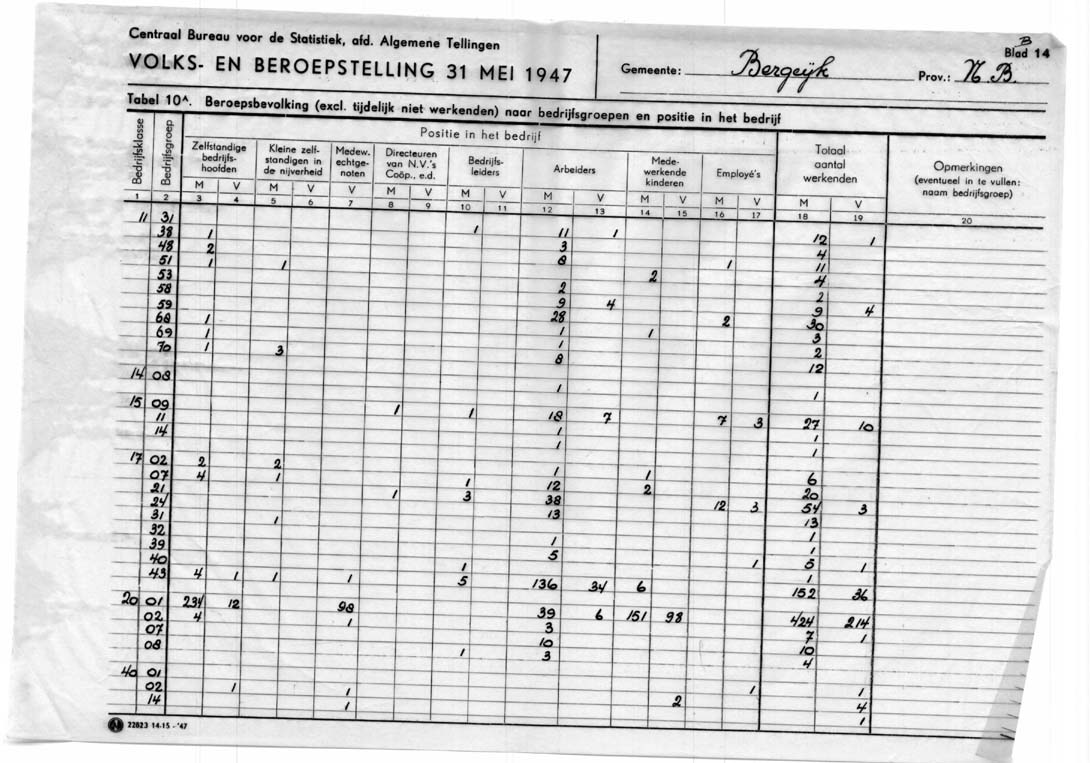 Centraal Bureau voor de Statistiek, afd. Algemene Tellingen
VOLKS- EN BEROEPSTELLING 31 MEI 1947
Gemeente: Bergeijk Prov.: N.B.
B
Blad 14
Tabel 10ᴬ. Beroepsbevolking (excl. tijdelijk niet werkenden) naar bedrijfsgroepen en positie in het bedrijf
Bedrijfsklasse
Bedrijfsgroep
Positie in het bedrijf
Zelfstandige bedrijfs-hoofden
Kleine zelf-standigen in de nijverheid
Medew. echtge-noten
Directeuren van N.V.'s Coöp., e.d.
Bedrijfs-leiders
Arbeiders
Mede-werkende kinderen
Employé's
Totaal aantal werkenden
Opmerkingen (eventueel in te vullen: naam bedrijfsgroep)
M V M V V M V M V M V M V M V M V
1 2 3 4 5 6 7 8 9 10 11 12 13 14 15 16 17 18 19 20
11 31 1 11 1 12 1
38 1 3 4
48 2 8 1 11
51 1 1 2 4
53 2 2
58 9 4 9 4
59 28 2 30
68 1 1 1 3
69 1 1 2
70 1 3 8 12
14 08 1 1
15 09 1 1 18 7 7 3 27 10
11 1 1
14 1 1
17 02 2 2 1 1 6
07 4 1 1 12 2 20
21 1 3 38 12 3 54 3
24 13 13
31 1 1
32 1 1
39 5 1 5 1
40 1 1
43 4 1 1 1 5 136 34 6 152 36
20 01 234 12 98 39 6 151 98 424 214
02 4 1 3 7 1
07 10 10
08 1 3 4
40 01 1 1
02 1 1 2 4
14 1 1
22823 14-15 - '47